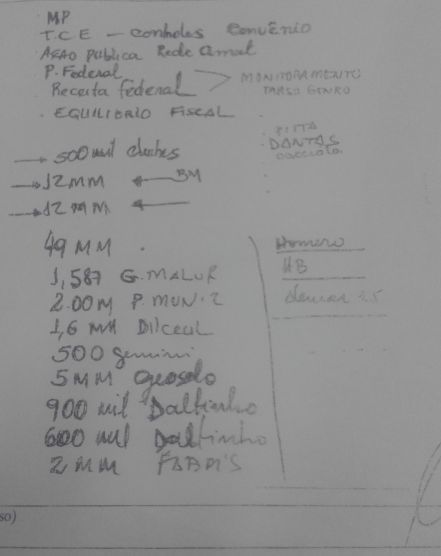 MP
T.C.E - controles Convênio
Ação pública Rede Cemat
P. Federal
Receita federal
MONITORAMENTO
TARSO GENRO
. EQUILIBRIO FISCAL
PITTA
DANTAS
→ 500 mil
→ 12 MM ← BM
→ 12 MM ←
49 MM .
1,587 G. MALUF
2.00M P. MUN. 2
1,6 MM Dilceul
500 gemini
5 MM geosolo
900 mil Daltinho
600 mil Daltinho
2 MM FABM'S
Homero
HB
so)